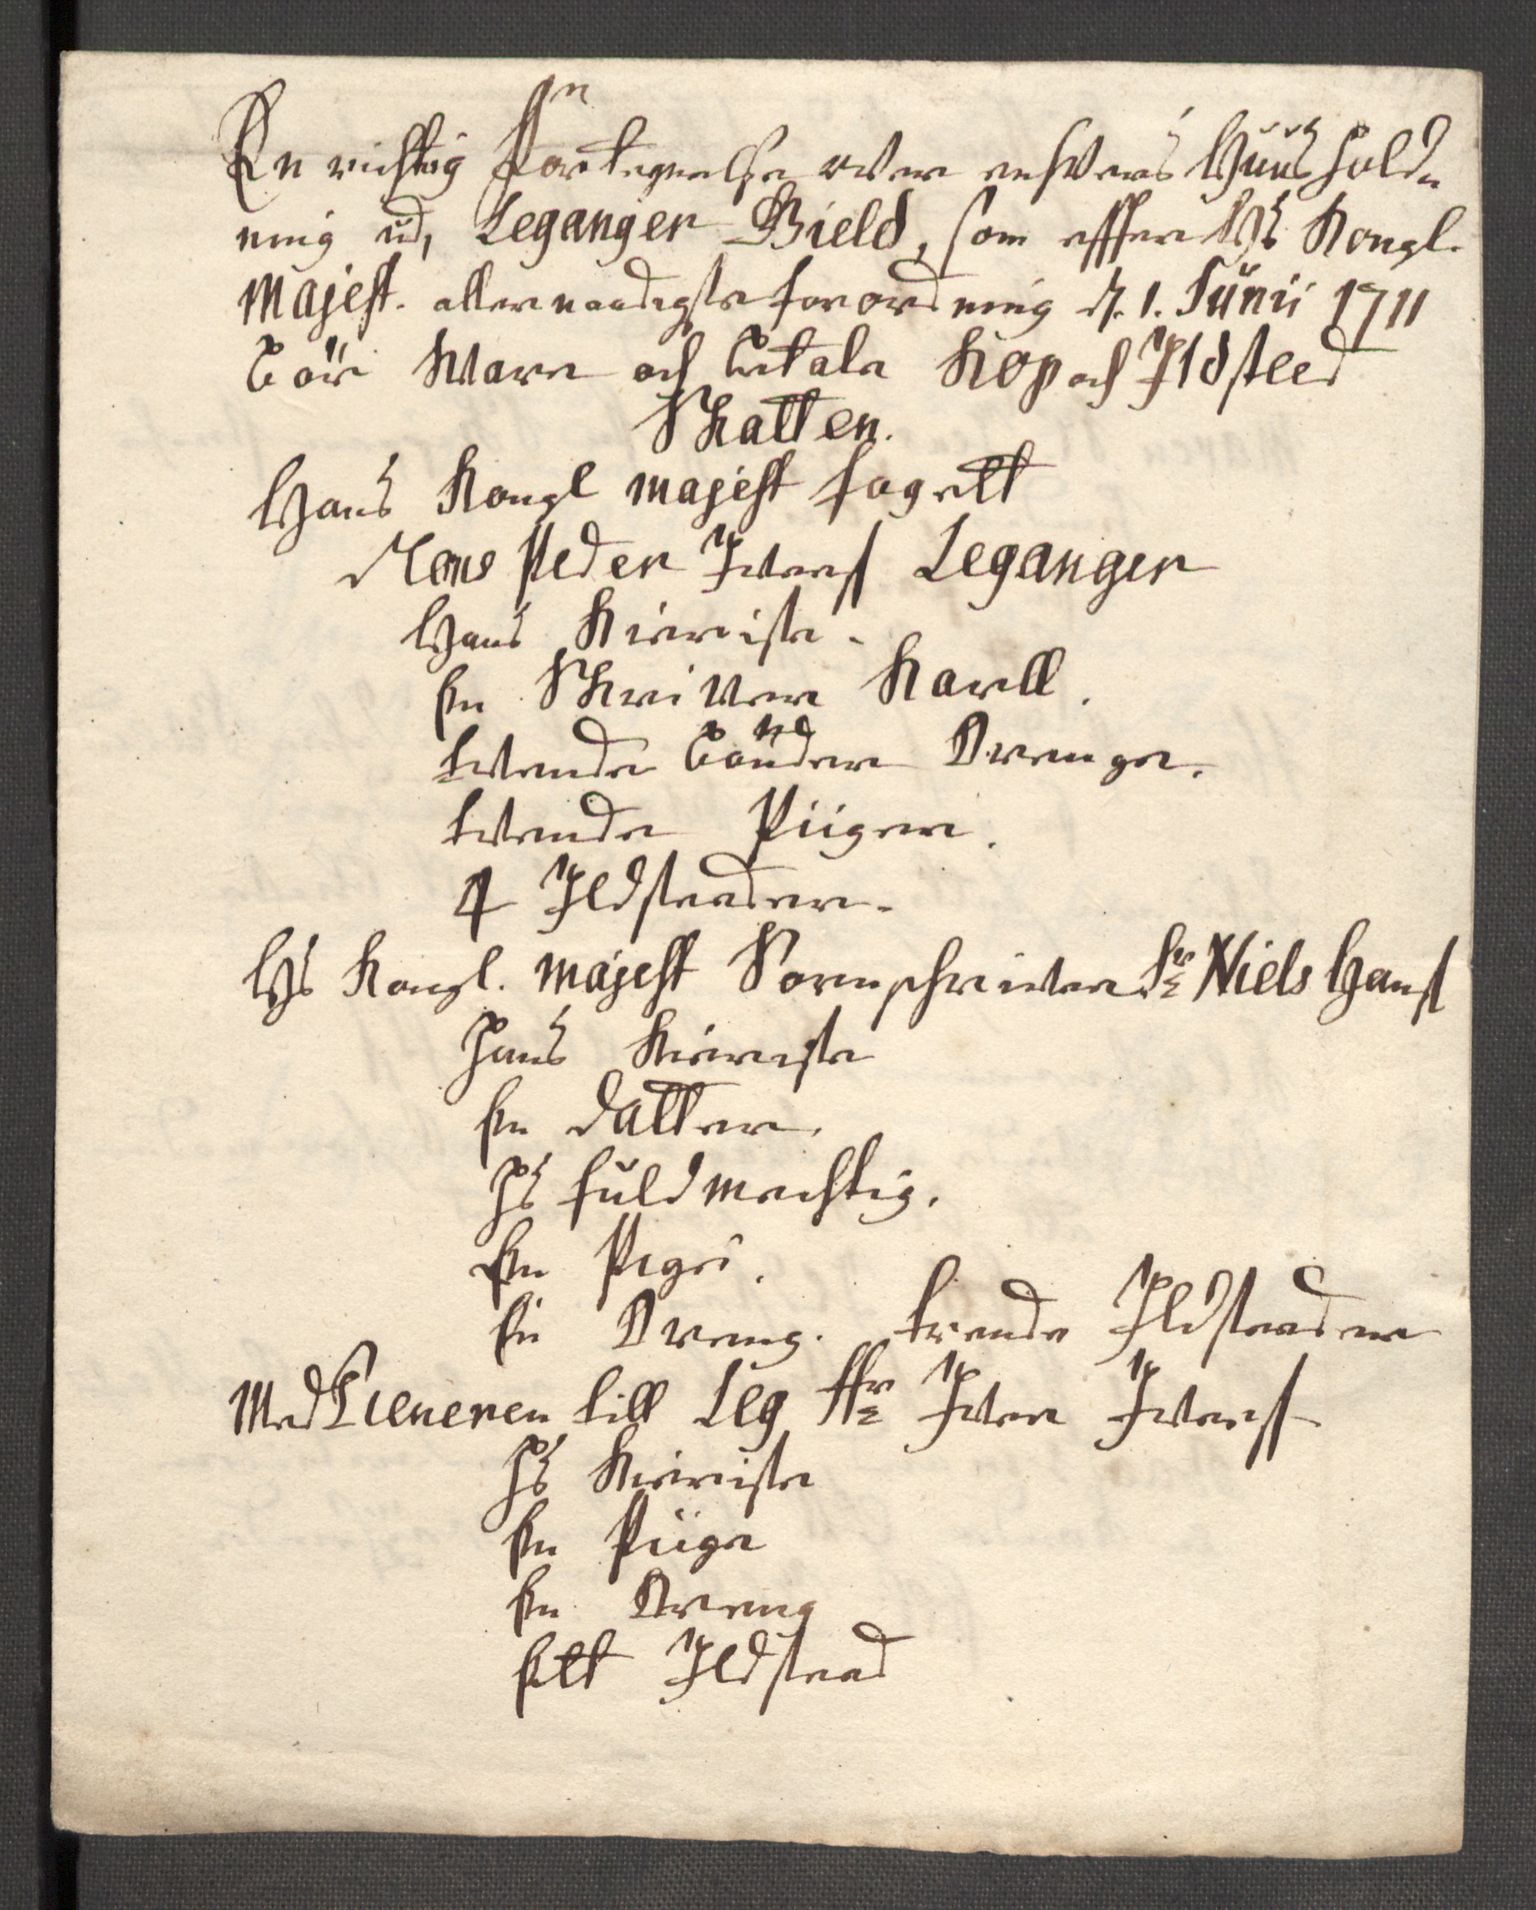 En richtig Fortegnelse over enhvers Huus hold¬
ning udj Leganger Gield, som effter Hs Kongl.
Majest. allernaadigste forordning d. 1. Junii 1711
bör svare och betale Kop och Ildsteed
Skatten.
Hans Kongl majest fogett
Mons Peder Iversß Leganger
Hans Kieriste.
En Skriver Karll.
tvende bönder Drenge.
tvende Piiger.
4 Ildsteeder.
Hs Kongl. majest Sorenschriver Sr Niels Hansß
Hans Kieriste
En datter.
Hs fuldmechtig.
En Pige.
En Dreng. trende Ildsteeder
Med Tieneren till Leg Hr Iver Iversß
Hs Kieriste
En Piige
En Dreng
Ett Ildsteed